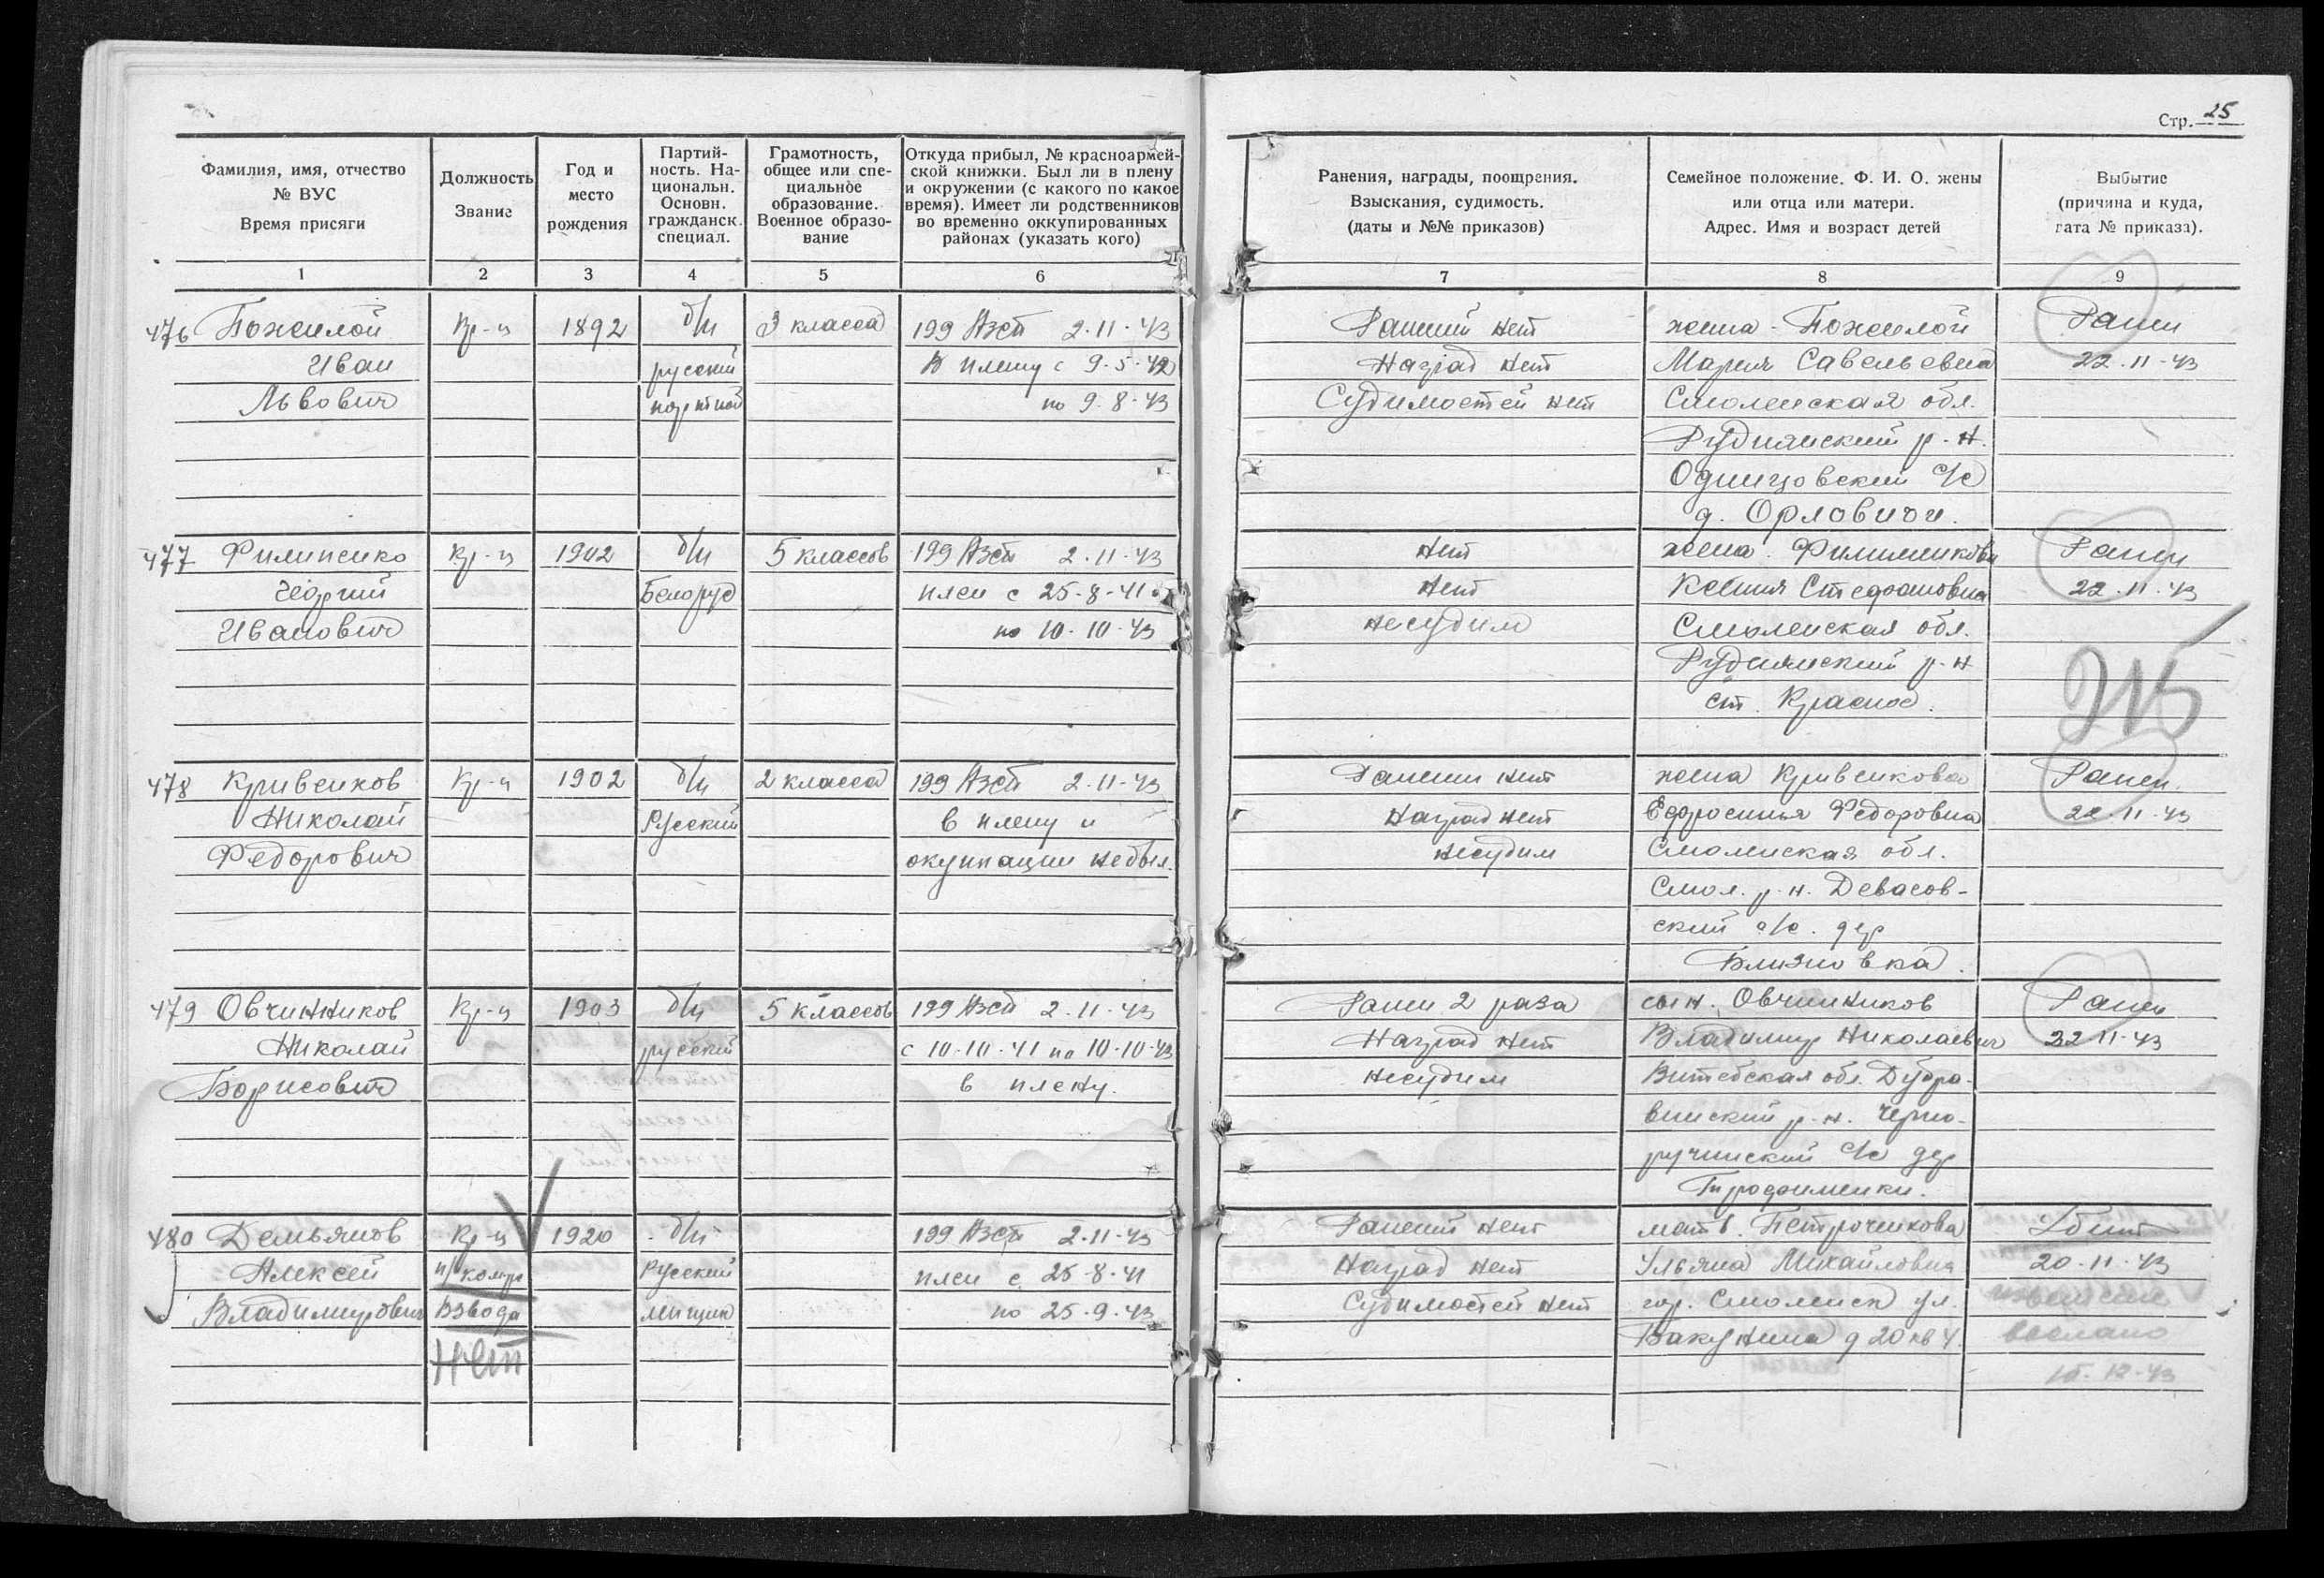 Стр. 25
Фамилия, имя, отчество
№ ВУС
Время присяги
Должность
Звание
Год и
место
рождения
Партий-
ность. На-
циональн.
Основн.
гражданск.
специал.
Грамотность,
общее или спе-
циальное
образование.
Военное образо-
вание
Откуда прибыл, № красноармей-
ской книжки. Был ли в плену
и окружении (с какого по какое
время). Имеет ли родственников
во временно оккупированных
районах (указать кого)
Ранения, награды, поощрения.
Взыскания, судимость.
(даты и №№ приказов)
Семейное положение. Ф. И. О. жены
или отца или матери.
Адрес. Имя и возраст детей
Выбытие
(причина и куда,
дата № приказа).
1 2 3 4 5 6 7 8 9
476 Пожилой Кр-ц 1892 б/п 3 класса 199 Азсп 2.11.43 Ранений нет жена - Пожилой Ранен
Иван русский В плену с 9.5.42 Наград нет Мария Савельевна 22.11-43
Львович портной по 9.8.43 Судимостей нет Смоленская обл.
Руднянский р-н.
Одинцовский с/с
д. Орловичи.
477 Филипенко Кр-ц 1902 б/п 5 классов 199 Азсп 2.11.43 Нет жена. Ранен
Георгий Белорус плен с 25-8-41 Нет Ксения Стефановна 22.11.43
Иванович по 10.10.43 несудим Смоленская обл.
Руднянский р-н
ст. Красное.
478 Кривенков Кр-ц 1902 б/п 2 класса 199 Азсп 2.11-43 Ранений нет жена Кривенкова Ранен.
Николай Русский в плену и Наград нет Ефросинья Федоровна 22.11.43
Федорович окупации не был. Несудим Смоленская обл.
Смол. р.н. Девасов-
ский с/с. дер
Близновка.
479 Овчинников Кр-ц 1903 б/п 5 классов 199 Азсп 2.11.43 Ранен 2 раза сын. Овчинников Ранен
Николай русский с 10.10.41 по 10.10.43 Наград нет Владимир Николаевич 22 11.43
Борисович в плену. несудим Витебская обл. Дубро-
венский р-н. Черно-
ручинский с/с дер
Трофименки.
480 Демьянов Кр-ц 1920 б/п 199 Азсп 2.11.43 Ранений нет мать. Петроченкова Убит
Алексей п/комр Русский плен с 25.8.41 Наград нет Ульяна Михайловна 20.11.43
Владимирович взвода по 25.9.43 Судимостей нет гор. Смоленск ул. извещение
Нет Бакунина д 20 кв 4. выслано
12-43